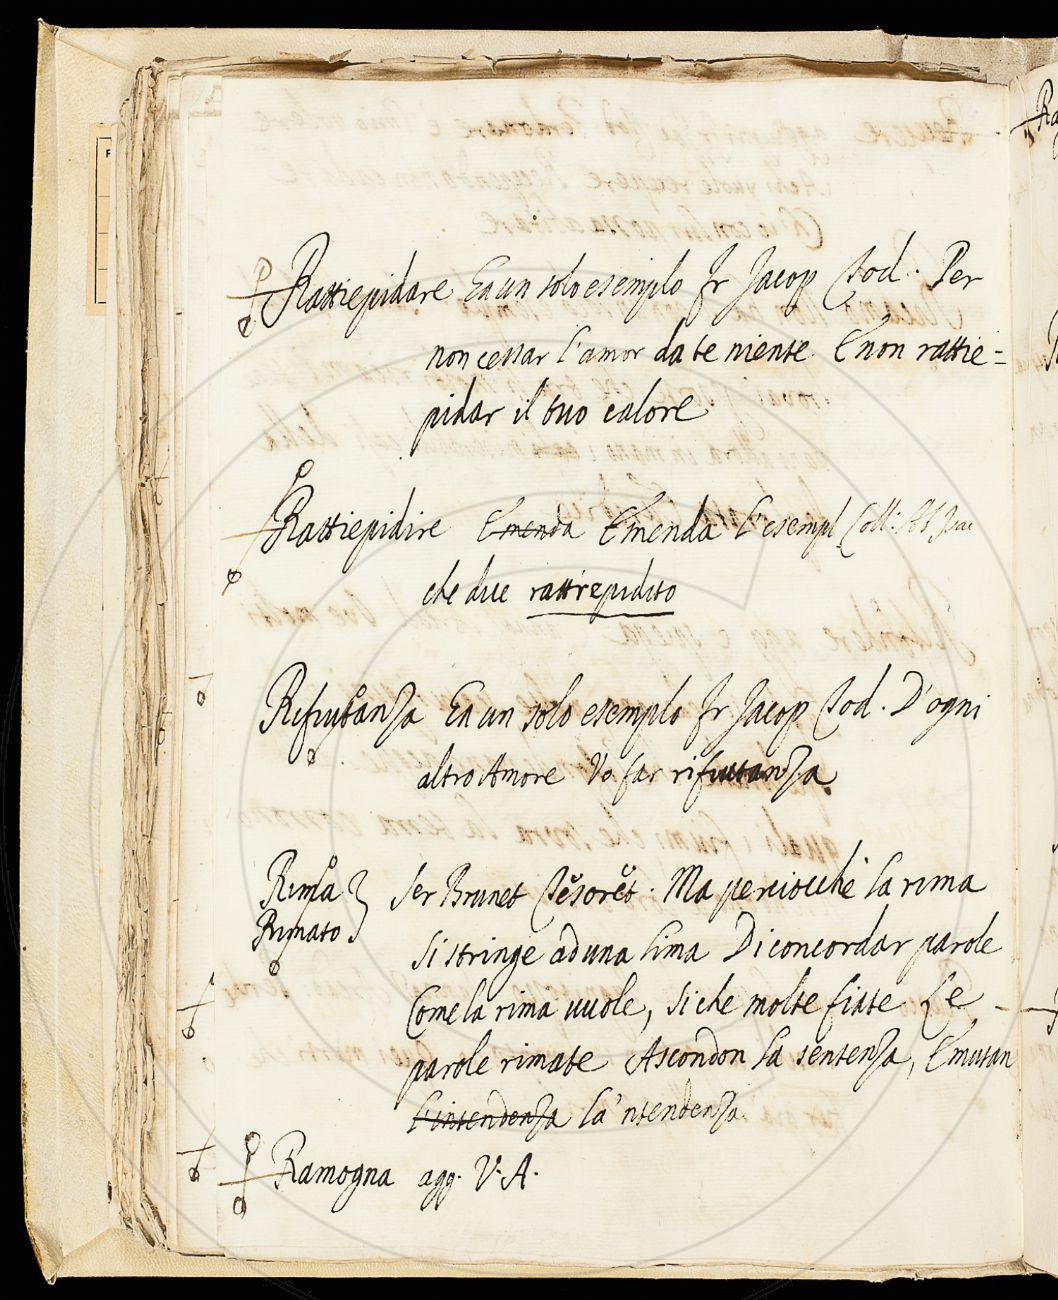 Rattiepidare Ea un solo esemplo Fr Jacop Tod. Per
non cessar l'amor da te niente. E non rattie=
pidar il tuo calore.
Rattiepidire Emenda Emenda l'esempl Coll: Ab Isac
che dice rattrepidito
Rifiutanza Ea un solo esemplo Fr Jacop Tod. D'ogni
altro Amore Vo far rifiutanza
Rima } Ser Brunet Tesoret. Ma perciocchè la rima
Rimato Si stringe ad una lima Di concordar parole
Come la rima vuole, Siche molte fiate Le
parole rimate Ascondon la sentenza, E mutan
l'intendenza la 'ntendenza.
Ramogna agg. V. A.